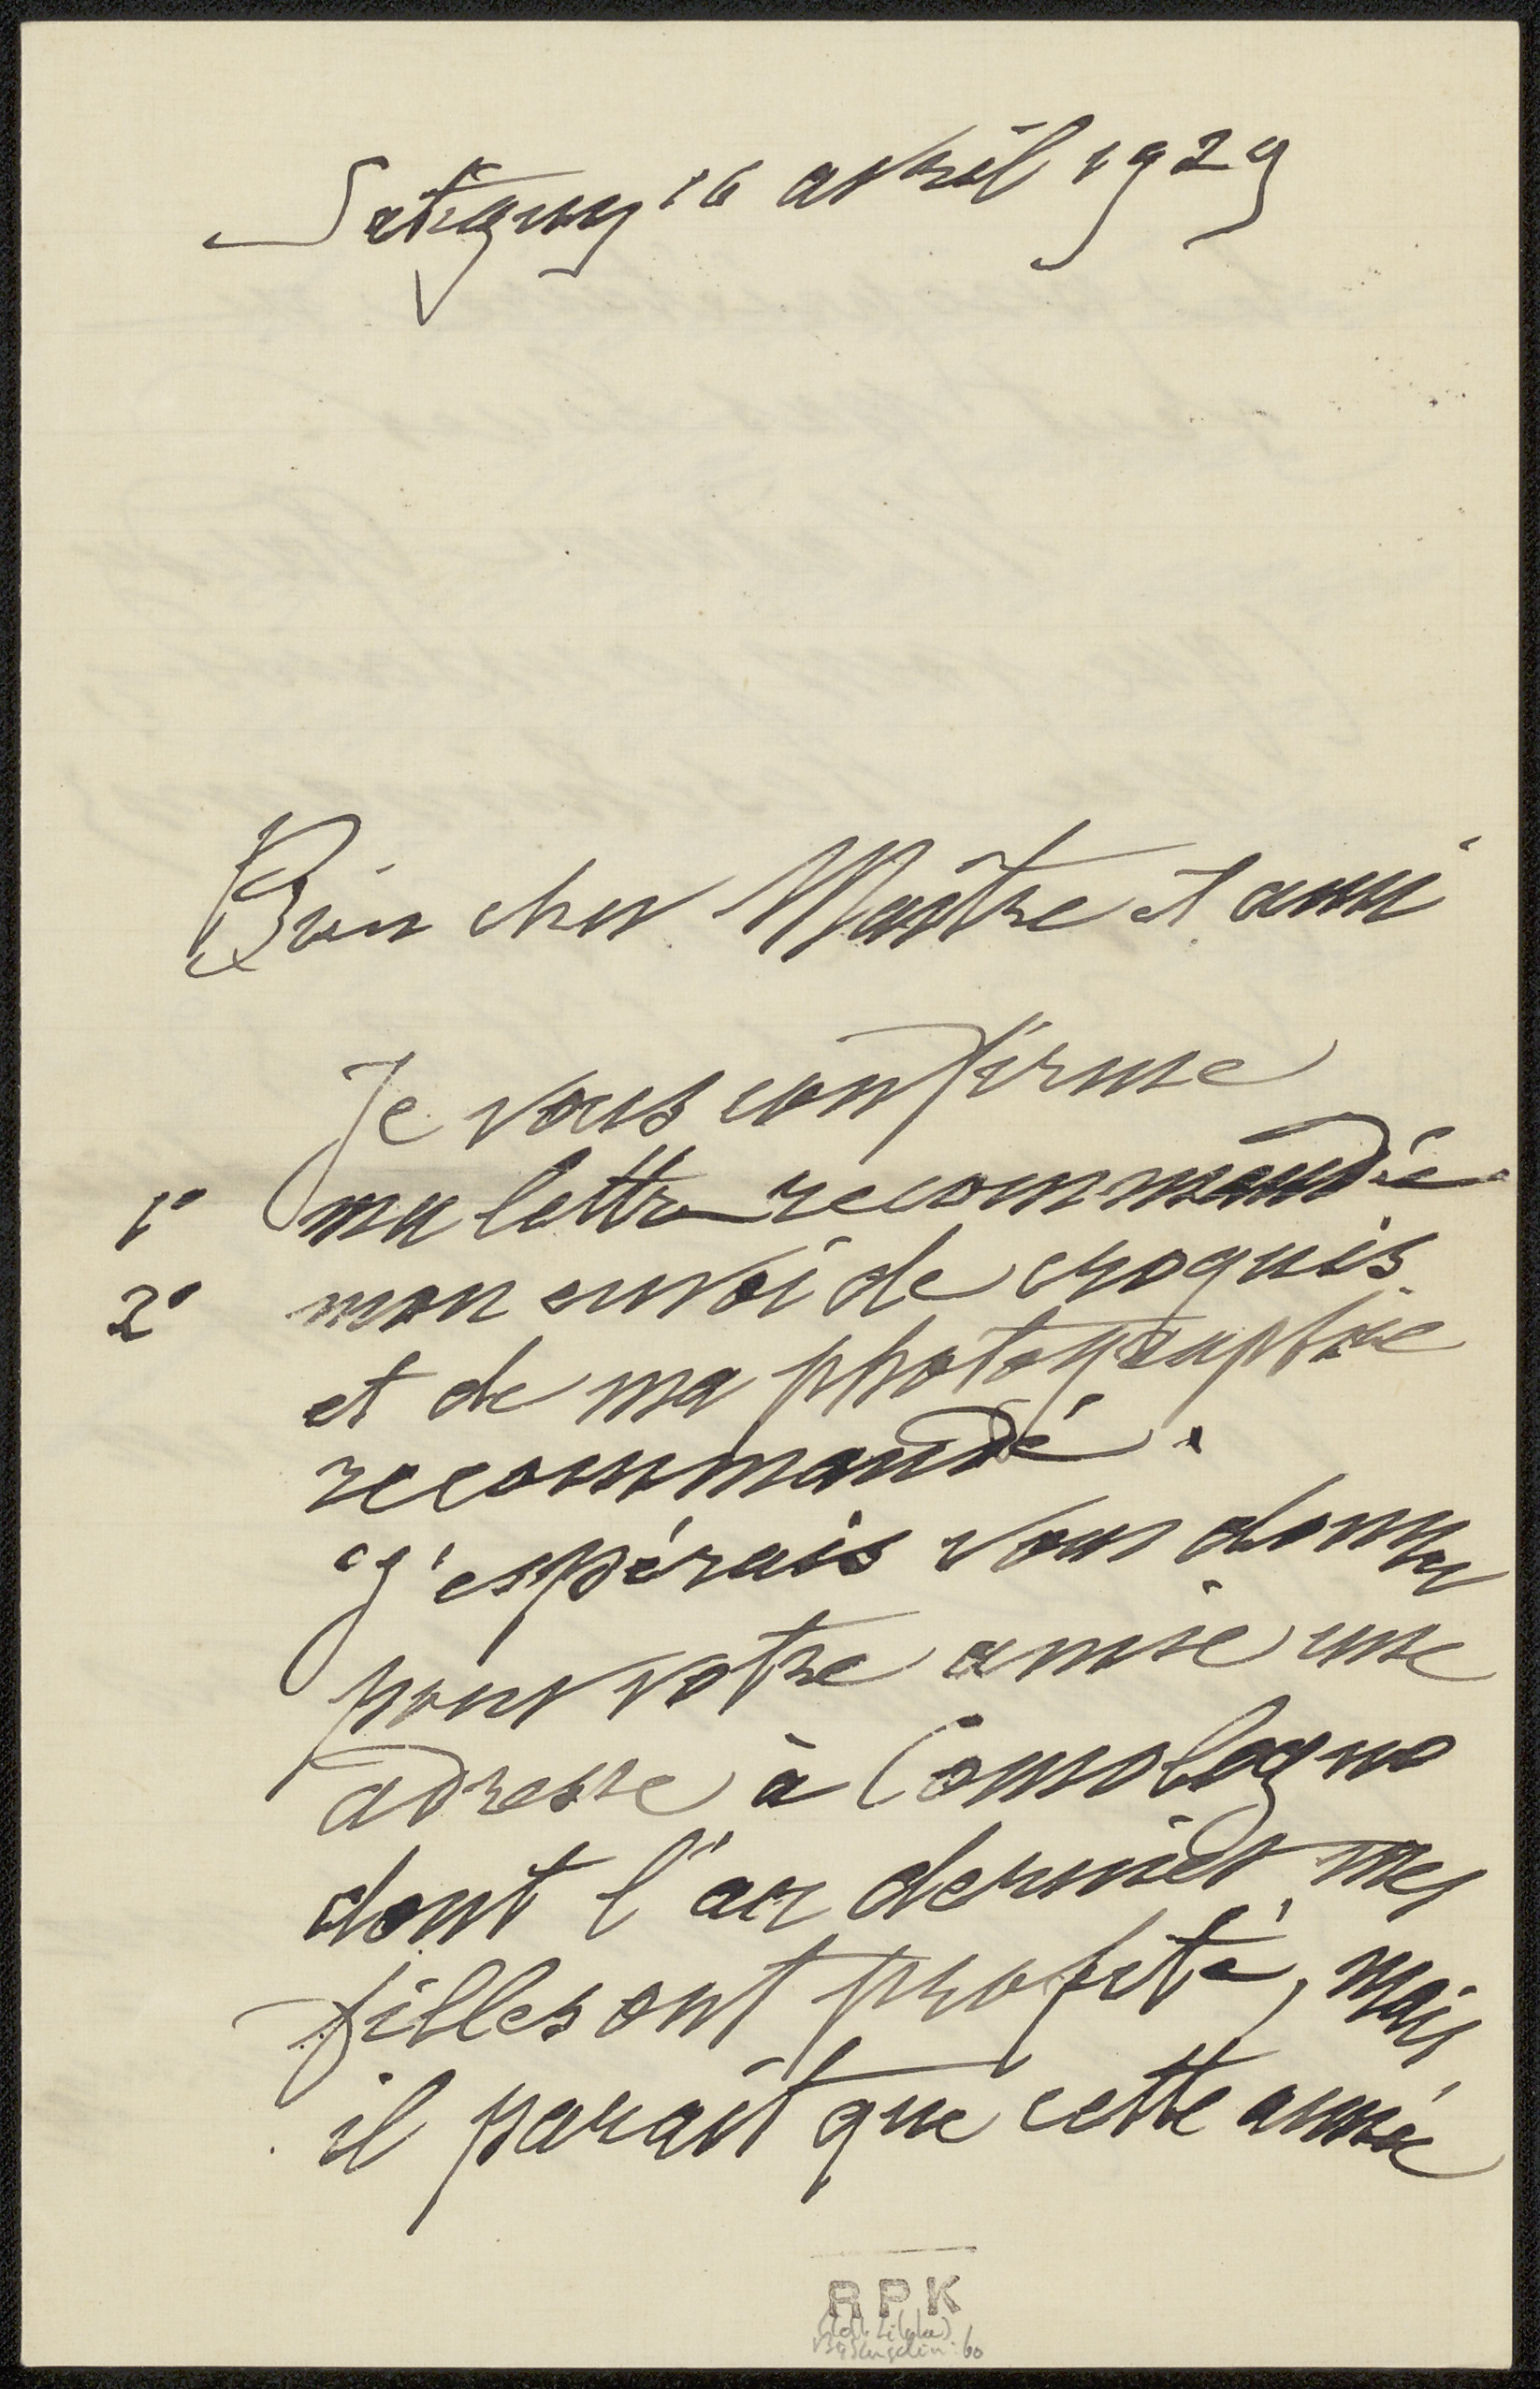 Satigny 16 avril 1929
Bien cher Maître et ami
Je vous confirme
1° ma lettre recommandée
2° mon envoi de croquis
et de ma photographie
recommandé.
J'espérais vous donner
pour votre amie une
adresse à Comologno
dont l'an dernier mes
filles ont profité, mais
il paraît que cette année
RPK